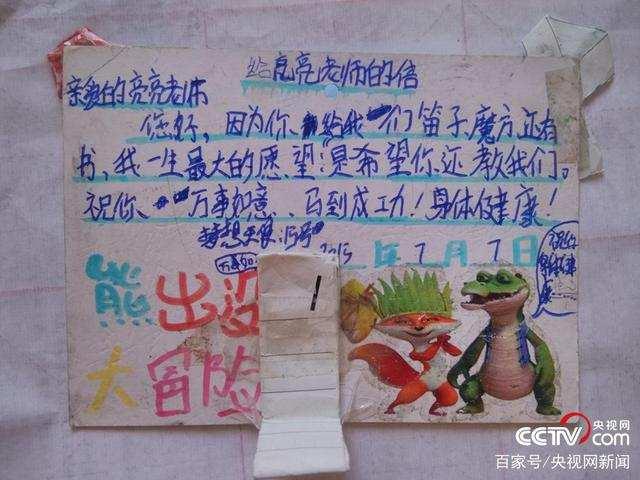 给亮亮老师的信
亲爱的亮亮老师
您好，因为你给我们笛子魔方还有
书，我一生最大的愿望：是希望你还教我们。
祝你、万事如意、马到成功！身体健康！
梦想天使：15号
2015年7月7日
万事如
熊出没
大冒险
央视网
CCTV.com
百家号/央视网新闻